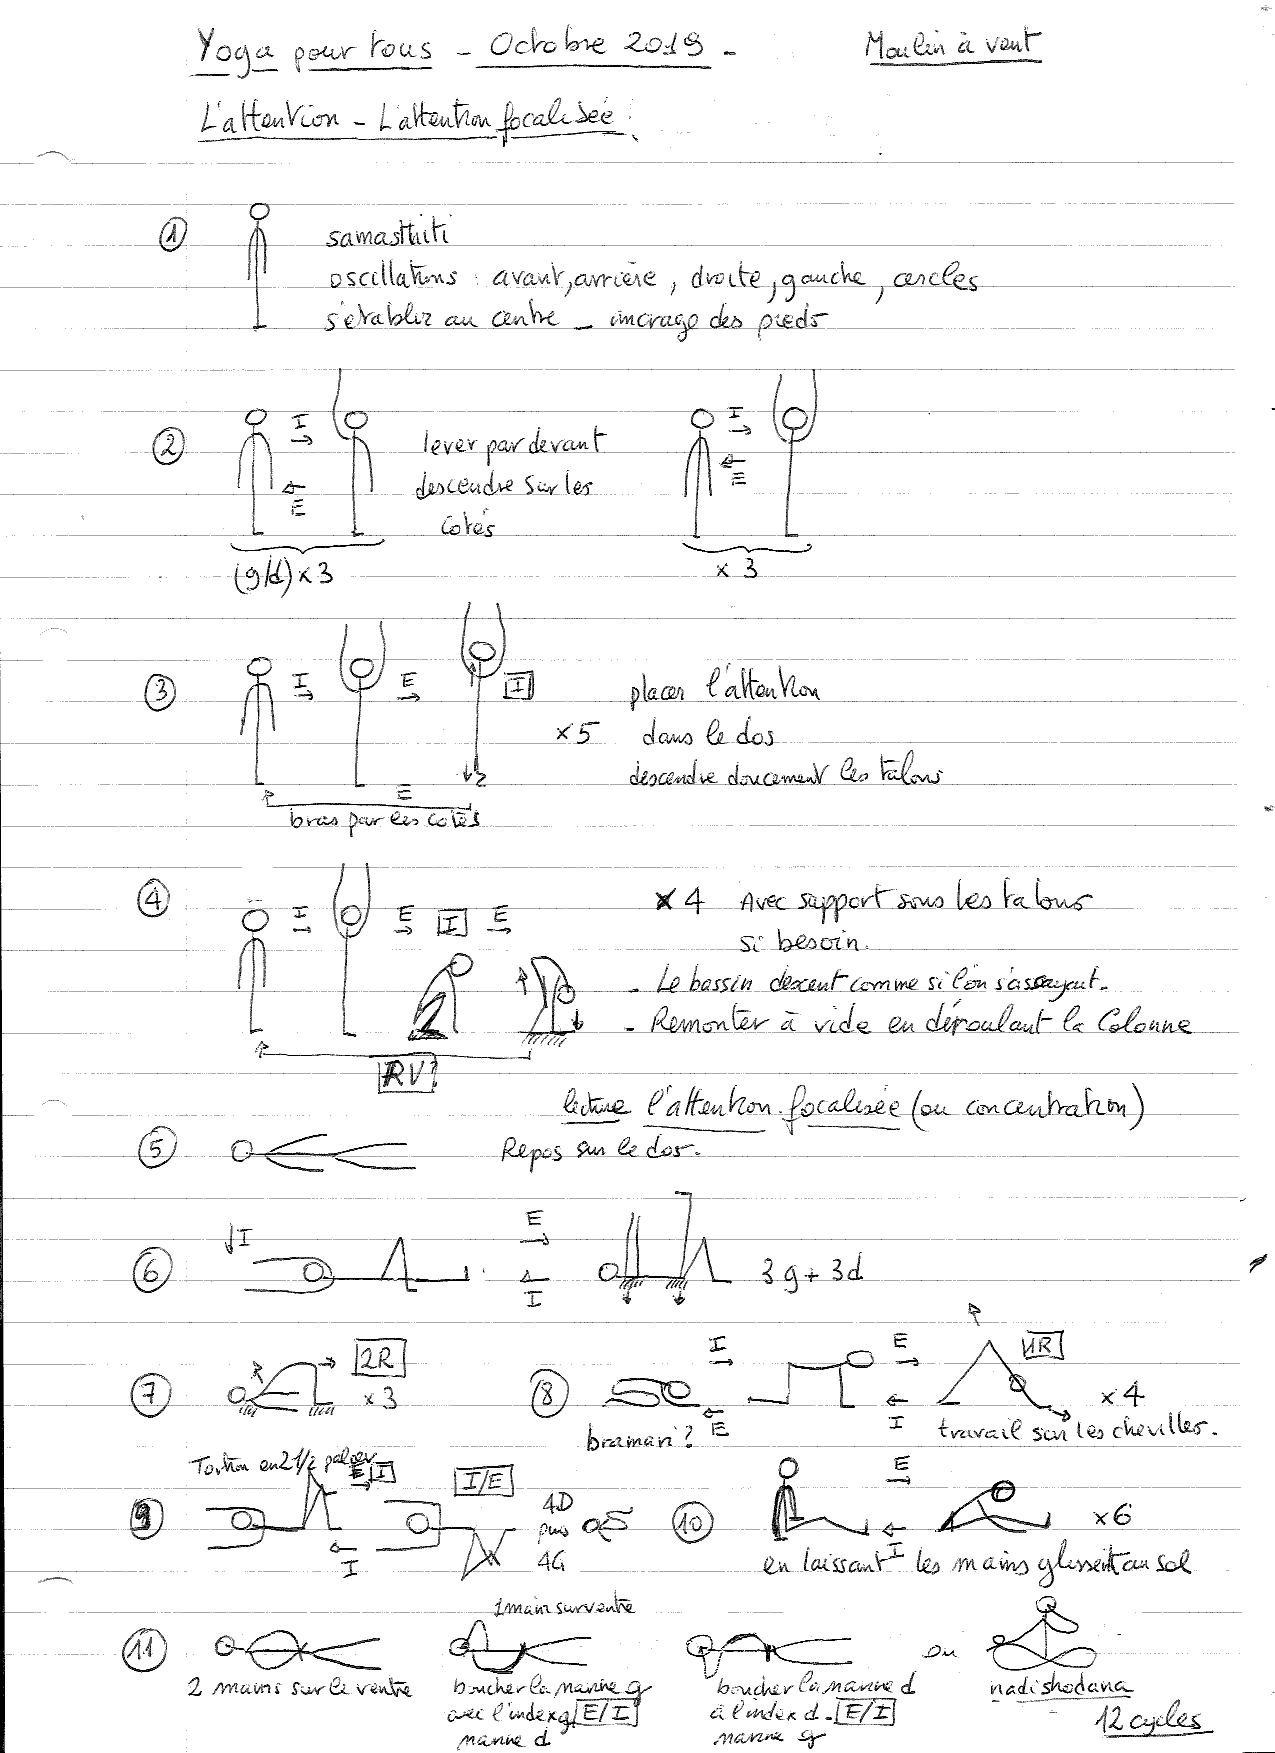 Yoga pour tous - Octobre 2019 - Moulin à vent
L'attention - L'attention focalisée :
1 samasthiti
oscillations : avant, arrière, droite, gauche, cercles
s'établir au centre - ancrage des pieds
2 I E lever par devant
descendre sur les
cotés
(g/d) x 3
I E x 3
3 I E I placer l'attention
x5 dans le dos
descendre doucement les talons
E
bras par les cotés
4 I E I E x 4 Avec support sous les talons
si besoin.
- Le bassin descent comme si l'on s'assayait.
- Remonter à vide en déroulant la Colonne
RV?
lecture l'attention focalisée (ou concentration)
5 Repos sur le dos.
6 I E I 3g + 3d
7 2R x 3
8 I E E I 1R x 4
bramari ? travail sur les chevilles.
Torsion en 2 1/2
9 E I I I/E 4D
puis
4G
10 E I x6
en laissant les mains glissent au sol
11 1 main sur ventre
2 mains sur le ventre
boucher la narine g
avec l'index g E/I
narine d
boucher la narine d
à l'index d - E/I
narine g
ou nadishodana
12 cycles